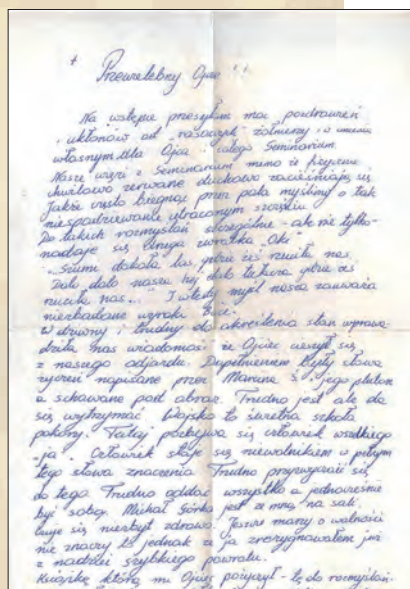 +
Przewielebny Ojcze !!
Na wstępie przesyłam moc pozdrowień
i ukłonów od "naszych" żołnierzy i w imieniu
własnym dla Ojca i całego Seminarium
Nasze więzi z Seminarium mimo iż fizycznie
chwilowo zerwane duchowo zacieśniają się
Jakże często biegnąc przez pola myślimy o tak
niespodziewanie utraconym szczęściu
Do takich rozmyślań szczególnie - ale nie tylko -
nadaje się druga zwrotka "Oki"
"Szumi dokoła las, gdzieżeś rzuciła nas
Dolo dolo nasza hej, dolo tułacza gdzieżeś
rzuciła nas..." I wtedy myśl nasza zauważa
niezbadane wyroki Boże.
W dziwny i trudny do określenia stan wprawa-
dziła nas wiadomość że Ojciec cieszył się
z naszego odjazdu. Dopełnieniem były słowa
życzeń napisane przez Mariana S i jego pluton
a schowane pod obraz. Trudno jest ale da
się wytrzymać Wojsko to świetna szkoła
pokory. Tutaj pozbywa się człowiek wszelkiego
"ja". Człowiek staje się niewolnikiem w pełnym
tego słowa znaczeniu Trudno przyzwyczaić się
do tego Trudno oddać wszystko a jednocześnie
być sobą. Michał Górka jest ze mną na sali.
czuje się niezbyt zdrowo. Jeszcze marzy o wolności
nie znaczy to jednak że ja zrezygnowałem już
z nadziei szybkiego powrotu.
Książkę którą mi Ojciec pożyczył - tę do rozmyślań